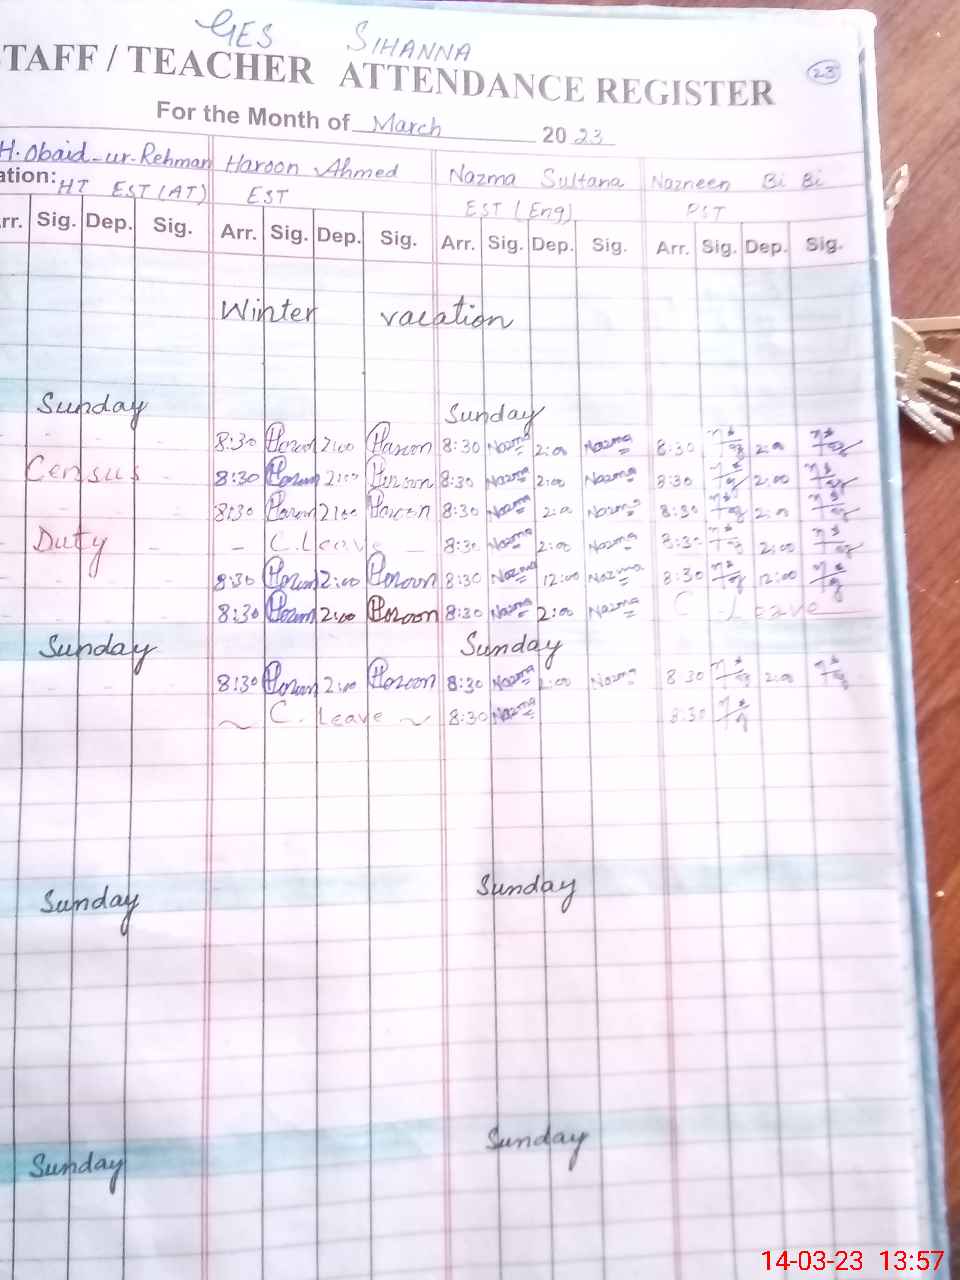 GES SIHANNA
TAFF / TEACHER ATTENDANCE REGISTER 23
For the Month of March 2023
H. Obaid-ur-Rehman Haroon Ahmed Nazma Sultana Nazneen Bi Bi
ation: HT EST (AT) EST EST (Eng) PST
rr. Sig. Dep. Sig. Arr. Sig. Dep. Sig. Arr. Sig. Dep. Sig. Arr. Sig. Dep. Sig.
Winter vacation
Sunday Sunday
8:30 Haroon 2:00 Haroon 8:30 Nazma 2:00 Nazma 8:30 2:00
Census 8:30 Haroon 2:00 Haroon 8:30 Nazma 2:00 Nazma 8:30 2:00
8:30 Haroon 2:00 Haroon 8:30 Nazma 2:00 Nazma 8:30 2:00
Duty - C. Leave - 8:30 Nazma 2:00 Nazma 8:30 2:00
8:30 Haroon 2:00 Haroon 8:30 Nazma 12:00 Nazma 8:30 12:00
8:30 Haroon 2:00 Haroon 8:30 Nazma 2:00 Nazma C. Leave
Sunday Sunday
8:30 Haroon 2:00 Haroon 8:30 Nazma 2:00 Nazma 8:30 2:00
~ C. Leave ~ 8:30 Nazma 8:30
Sunday Sunday
Sunday Sunday
14-03-23 13:57